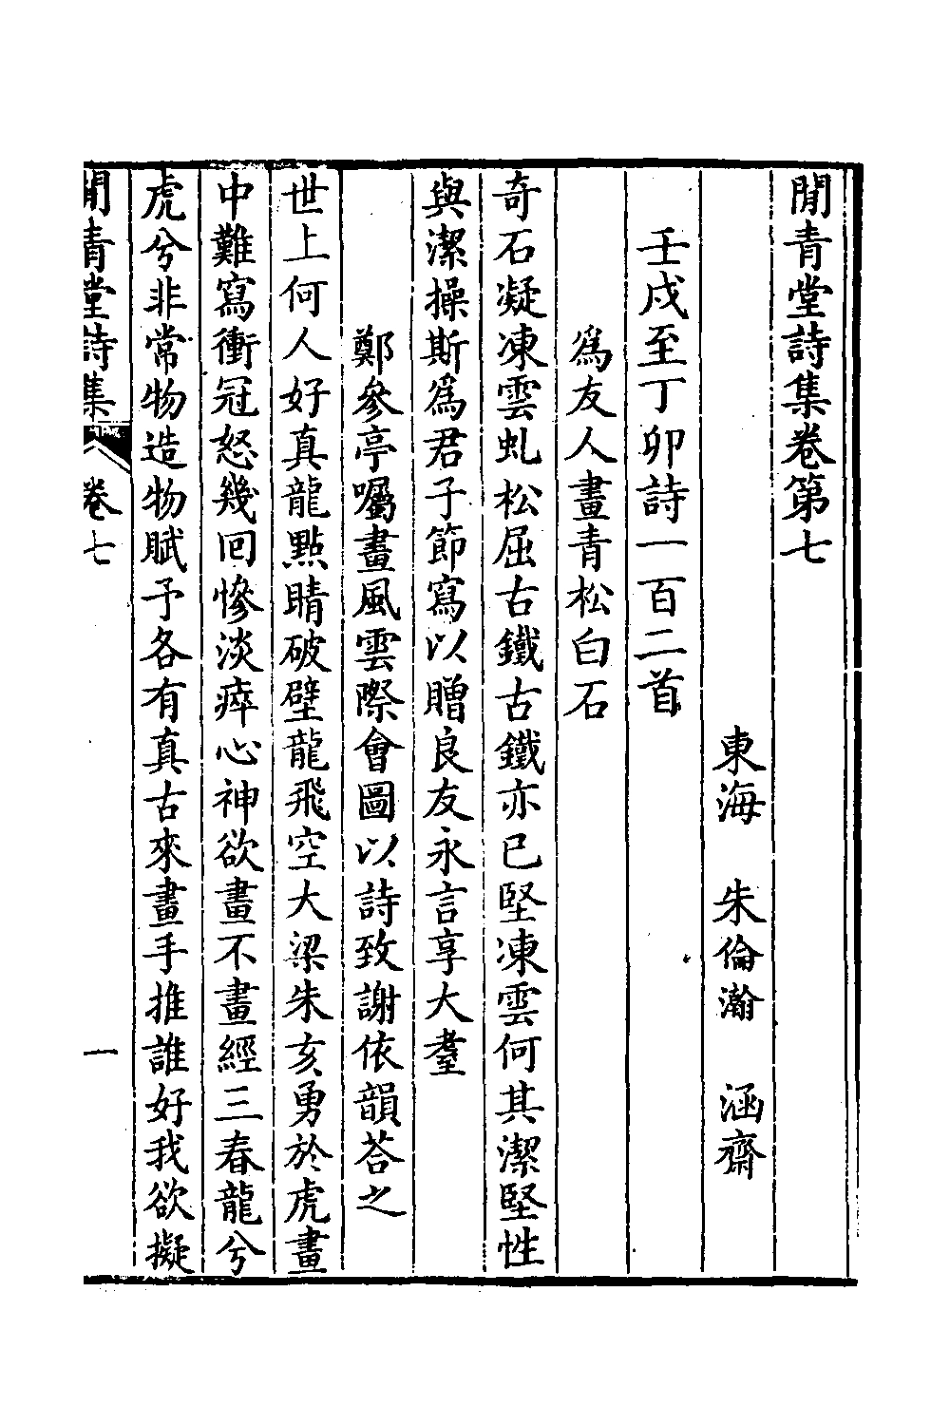 閒青堂詩集卷第七
東海　朱倫瀚　涵齋
壬戌至丁卯詩一百二首
爲友人畫青松白石
奇石凝凍雲虬松屈古鐵古鐵亦已堅凍雲何其潔堅性
與潔操斯爲君子節寫以贈良友永言享大耋
鄭參亭囑畫風雲際會圖以詩致謝依韻荅之
世上何人好真龍點睛破壁龍飛空大梁朱亥勇於虎畫
中難寫衝冠怒幾回慘淡瘁心神欲畫不畫經三春龍兮
虎兮非常物造物賦予各有真古來畫手推誰好我欲擬
閒青堂詩集　卷七　一